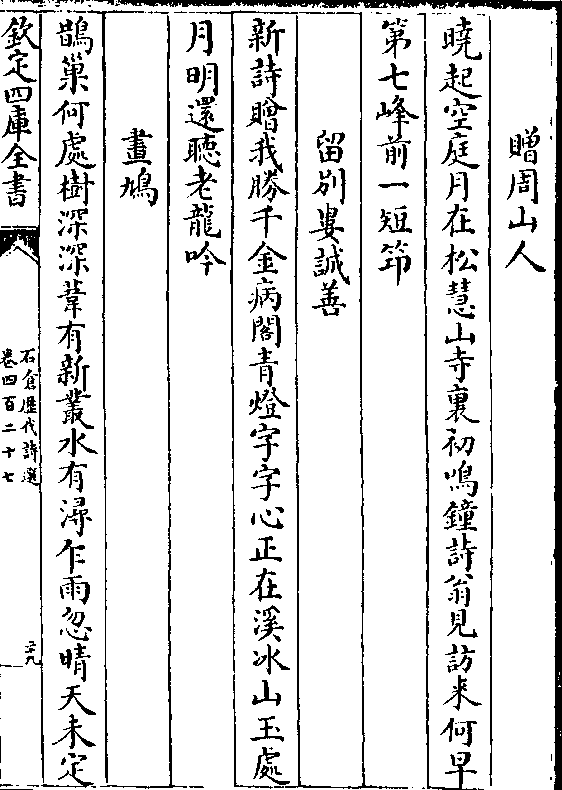 贈周山人
曉起空庭月在松慧山寺裏初鳴鐘詩翁見訪来何早
第七峰前一短筇
留別婁誠善
新詩贈我勝千金病閣青燈字字心正在溪冰山玉處
月明還聽老龍吟
畫鳩
鵲巢何處樹深深葦有新叢水有潯乍雨忽晴天未定
欽定四庫全書
石倉歷代詩選
卷四百二十七
三十九